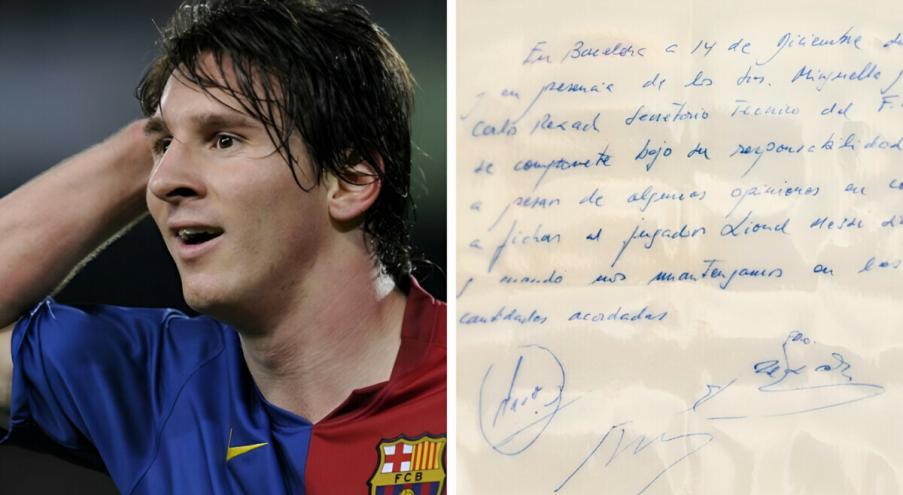 En Barcelona a 14 de Diciembre d
y en presencia de los Srs. Minguella y
Carlos Rexach Secretario Tecnico del F.
se compromete bajo su responsabilidad
a pesar de algunas opiniones en co
a fichar al jugador Lionel Messi si
y cuando nos mantengamos en las
cantidades acordadas
FCB